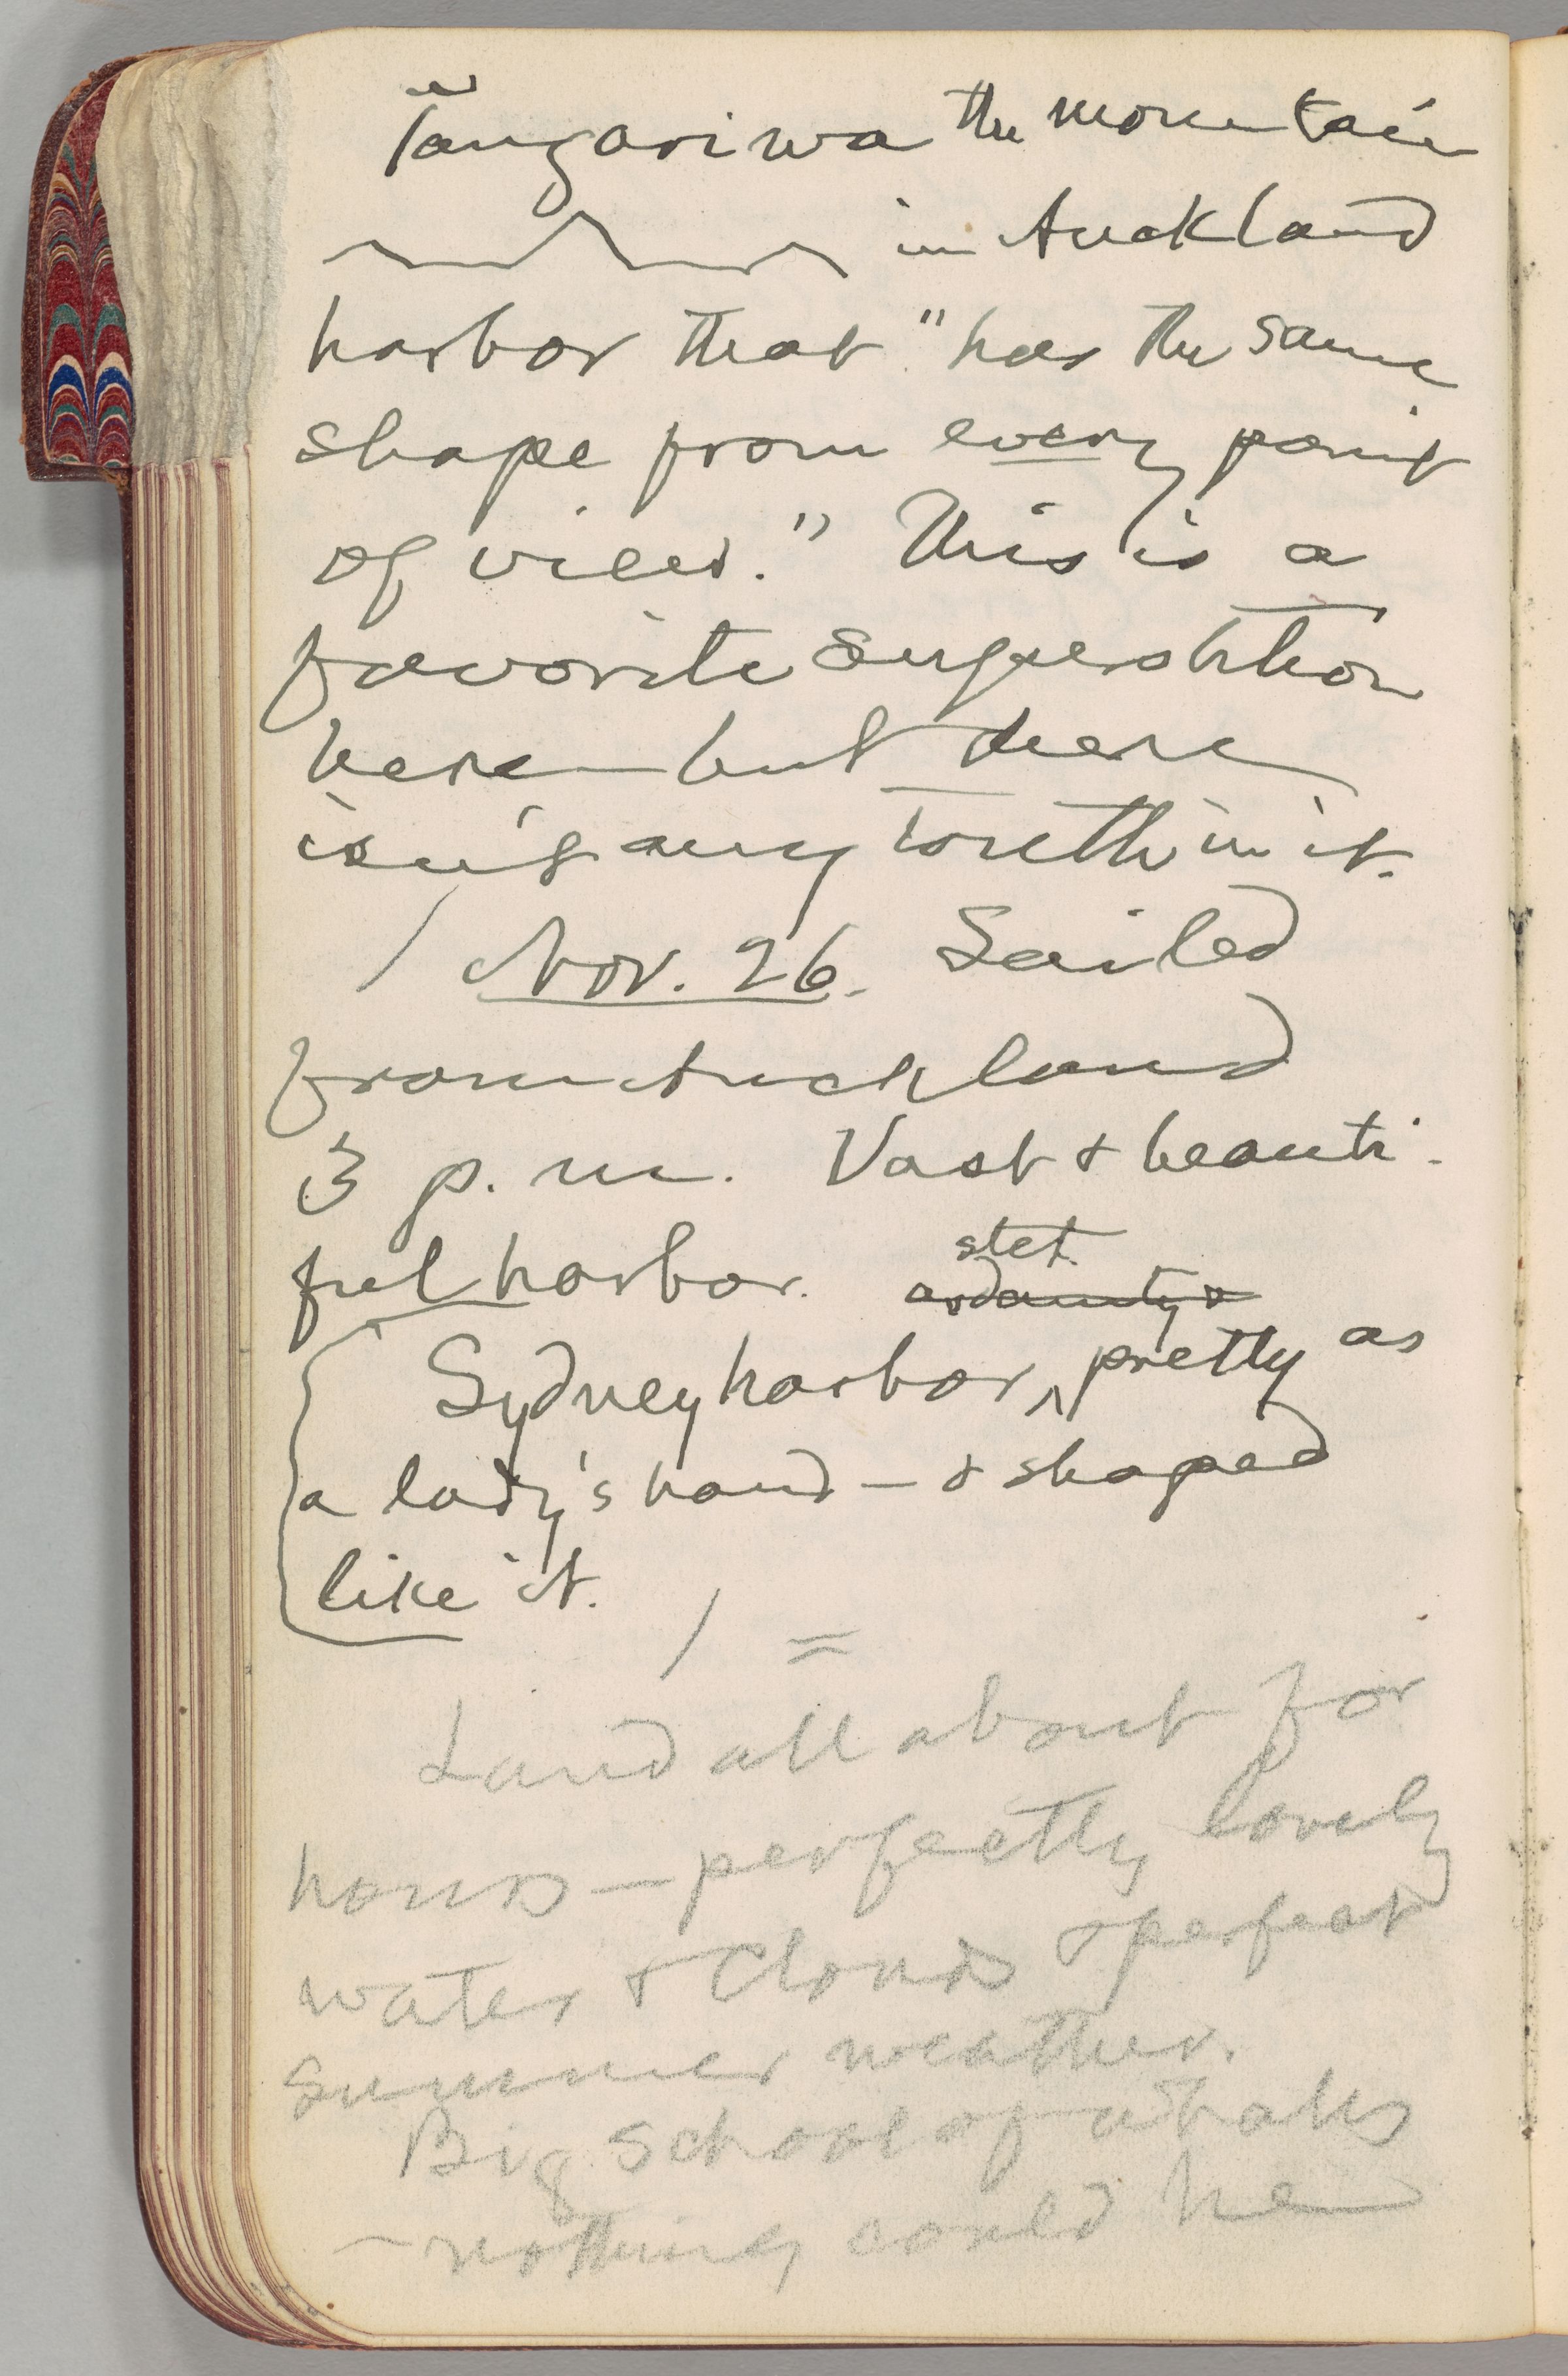 Tangariwa the mountain
in Auckland
harbor that "has the same
shape from every point
of view." This is a
favorite superstition
here—but there
isn't any truth in it.
/ Nov. 26. Sailed
from Auckland
3 p.m. Vast & beauti-
ful harbor.
stet.
as dainty &
Sydney harbor, ^ pretty as
a lady's hand — & shaped
like it.
/ =
Land all about for
hours — perfectly lovely
water & clouds & perfect
summer weather.
Big school of whales
— nothing could be